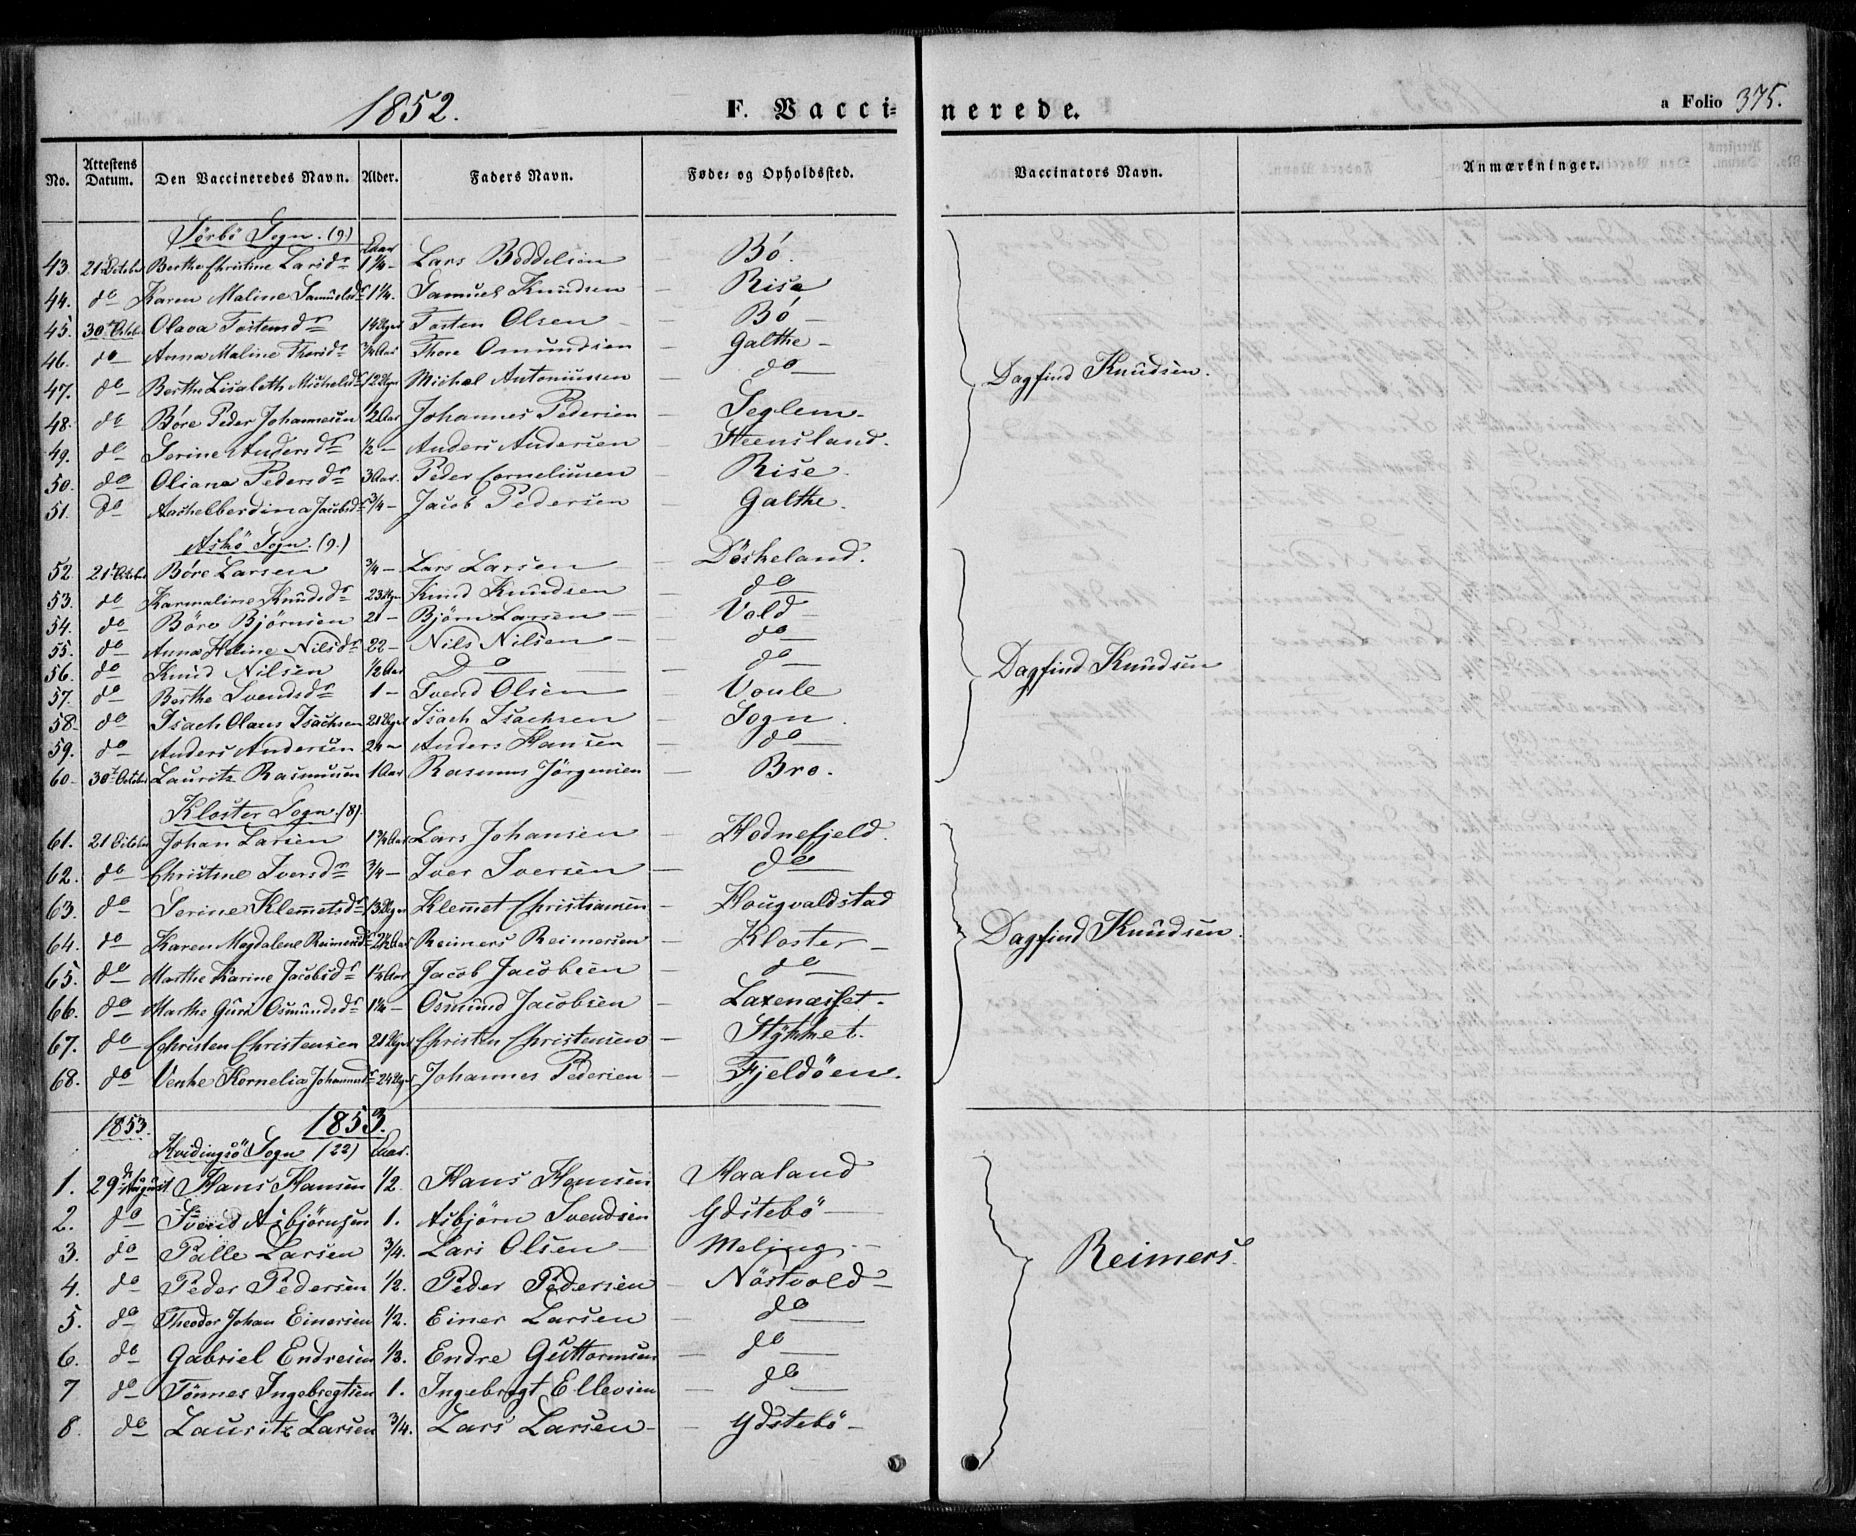 1852. F. Vacci- nerede. a Folio 375.
No. Attestens Datum. Den Vaccineredes Navn. Alder. Faders Navn. Føde- og Opholdssted. Vaccinators Navn. Anmærkninger.
Sörbö Sogn. (9)
43. 21 Octobr Berthe Christine Larsdr 1 1/4 — Lars Boddelsen — Bö.
44. do Karen Maline Samuelsdr 1 1/4. Samuel Knudsen — Rise
45. 30te Octobr Olava Tostensdr 14 Uger Tosten Olsen — Bö —
46. do Anna Maline Thorsdr 3/4 Aar Thore Omundsen — Galthe —
47. do Berthe Lisabeth Michelsdr 12 Uger Michel Antoniussen — do Dagfind Knudsen.
48. do Böre Peder Johannesen 1/2 Aar Johannes Pedersen — Seglem —
49. do Serine Andersdr 1/2 — Anders Andersen — Steensland.
50. do Oliana Pedersdr 3 Aar. Peder Corneliusen — Rise.
51. Do Jacobsdr 3/4 — Jacob Pedersen — Galthe.
Askö Sogn. (9.)
52. 21 Octobr Böre Larsen 3/4 — Lars Larsen — Döskeland.
53. do Karmaline Knudsdr 23 Uger Knud Knudsen — do
54. do Böre Björnsen 21 — Björn Larsen — Vold —
55. do Anna Heline Nilsdr 22 — Nils Nilsen — do
56. do Knud Nilsen 1/2 Aar Do — do Dagfind Knudsen
57. do Berthe Svendsdr 1 — Svend Olsen — Voule
58. do Isach Olaus Isachsen 21 Uger Isach Isachsen — Sogn.
59. do Anders Andersen 24 — Anders Hansen — do
60. 30te Octobr Lauritz Rasmusen 1 Aar Rasmus Jörgensen — Bro.
Kloster Sogn. (8).
61. 21 Octobr Johan Larsen 1 3/4 Aar Lars Johansen — Hodnefjeld.
62. do Christine Iversdr 3/4 — Iver Iversen — do
63. do Serine Klemmetsdr 13 Uger Klemmet Christiansen — Hougvaldstad
64. do Karen Magdalene Reimersdr 2 1/2 Aar Reimers Reimersen — Kloster — Dagfind Knudsen.
65. do Marthe Karine Jacobsdr 1 1/2 Aar Jacob Jacobsen — do
66. do Marthe Guri Osmundsdr 1 1/4 — Osmund Jacobsen — Laxenæsset.
67. do Christen Christensen 21 Uger Christen Christensen — Stykket.
68. do Venke Kornelia Johannesdr 24 Uger Johannes Pedersen — Fjeldöen.
1853. 1853.
Kvidingsö Sogn (22) Aar.
1. 29de August Hans Hansen 1/2. Hans Hansen Haaland
2. do Svend Asbjörnsen 1. Asbjörn Svendsen Ydstebö —
3. do Palle Larsen 3/4. Lars Olsen — Meling — Reimers.
4. do Peder Pedersen 1/2. Peder Pedersen — Nöstvold —
5. do Theodor Johan Einersen 1/2. Einer Larsen — do
6. do Gabriel Endresen 1/3. Endre Guttormsen — do
7 do Tönnes Ingebregtsen 1. Ingebregt Ellevsen — do
8. do Lauritz Larsen 3/4. Lars Larsen — Ydstebö —